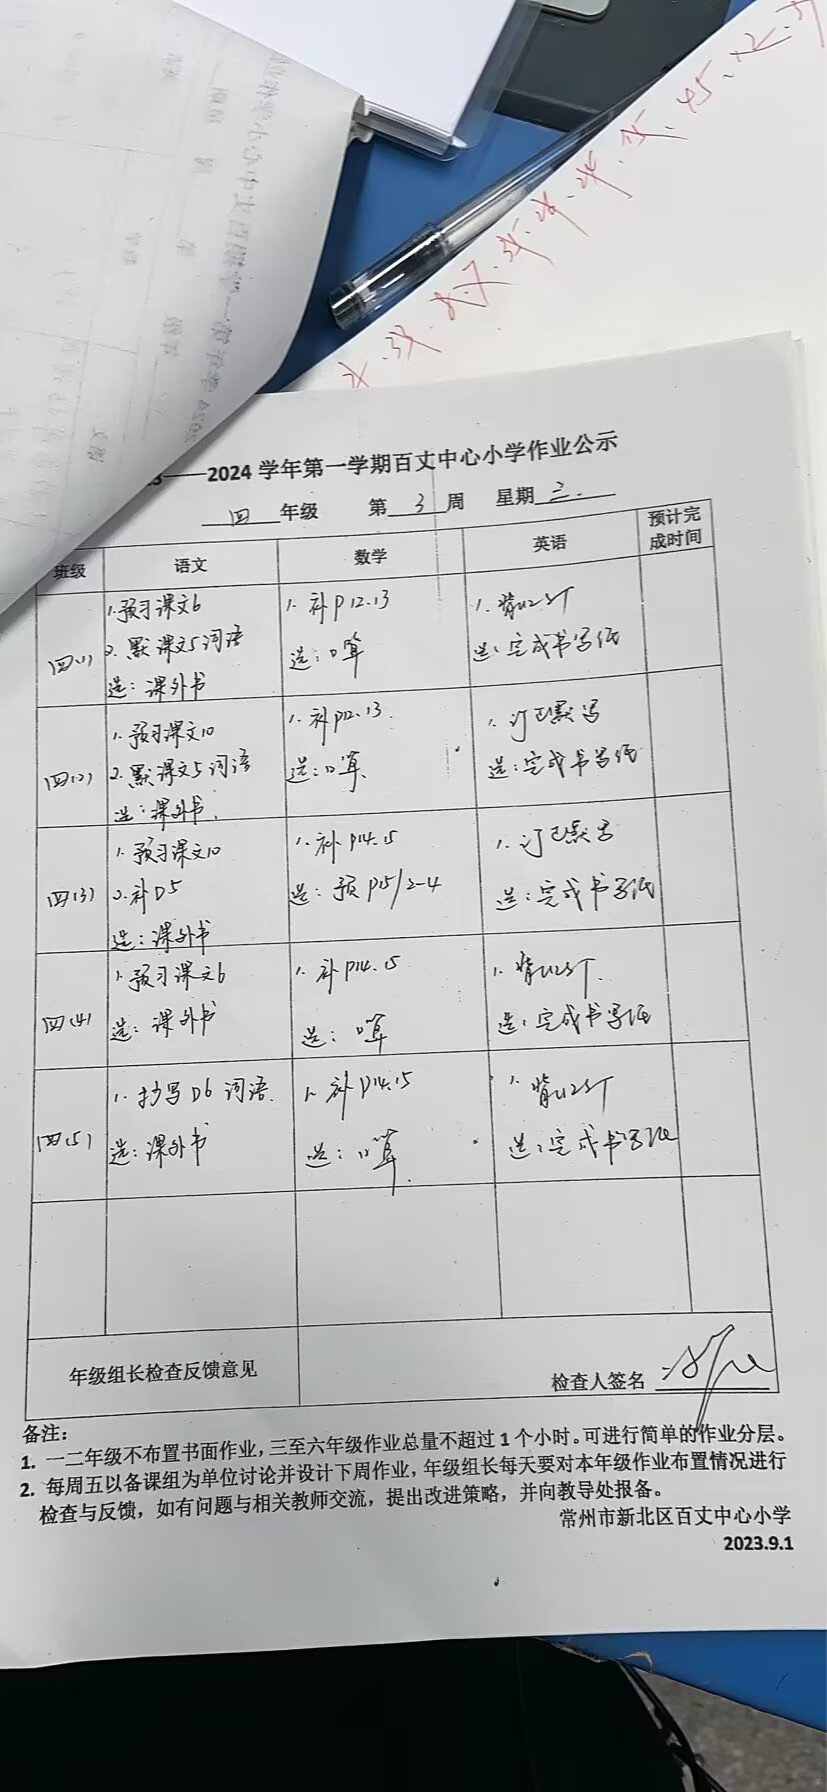 ——2024学年第一学期百丈中心小学作业公示
四 年级 第 3 周 星期 三
班级 语文 数学 英语 预计完成时间
四(1)
1.预习课文6
2.默课文5词语
选:课外书
1.补P12.13
选:口算
1.背U2ST
选:完成书写纸
四(2)
1.预习课文10
2.默课文5词语
选:课外书.
1.补P12.13.
选:口算.
1.订正默写
选:完成书写纸
四(3)
1.预习课文10
2.补D5
选:课外书
1.补P14.15
选:预P15/2-4
1.订正默写
选:完成书写纸
四(4)
1.预习课文6
选:课外书
1.补P14.15
选:口算
1.背U2ST.
选:完成书写纸
四(5)
1.抄写D6词语.
选:课外书
1.补P14.15
选:口算.
1.背U2ST
选:完成书写纸
年级组长检查反馈意见
检查人签名
备注:
1. 一二年级不布置书面作业,三至六年级作业总量不超过1个小时。可进行简单的作业分层。
2. 每周五以备课组为单位讨论并设计下周作业,年级组长每天要对本年级作业布置情况进行
检查与反馈,如有问题与相关教师交流,提出改进策略,并向教导处报备。
常州市新北区百丈中心小学
2023.9.1